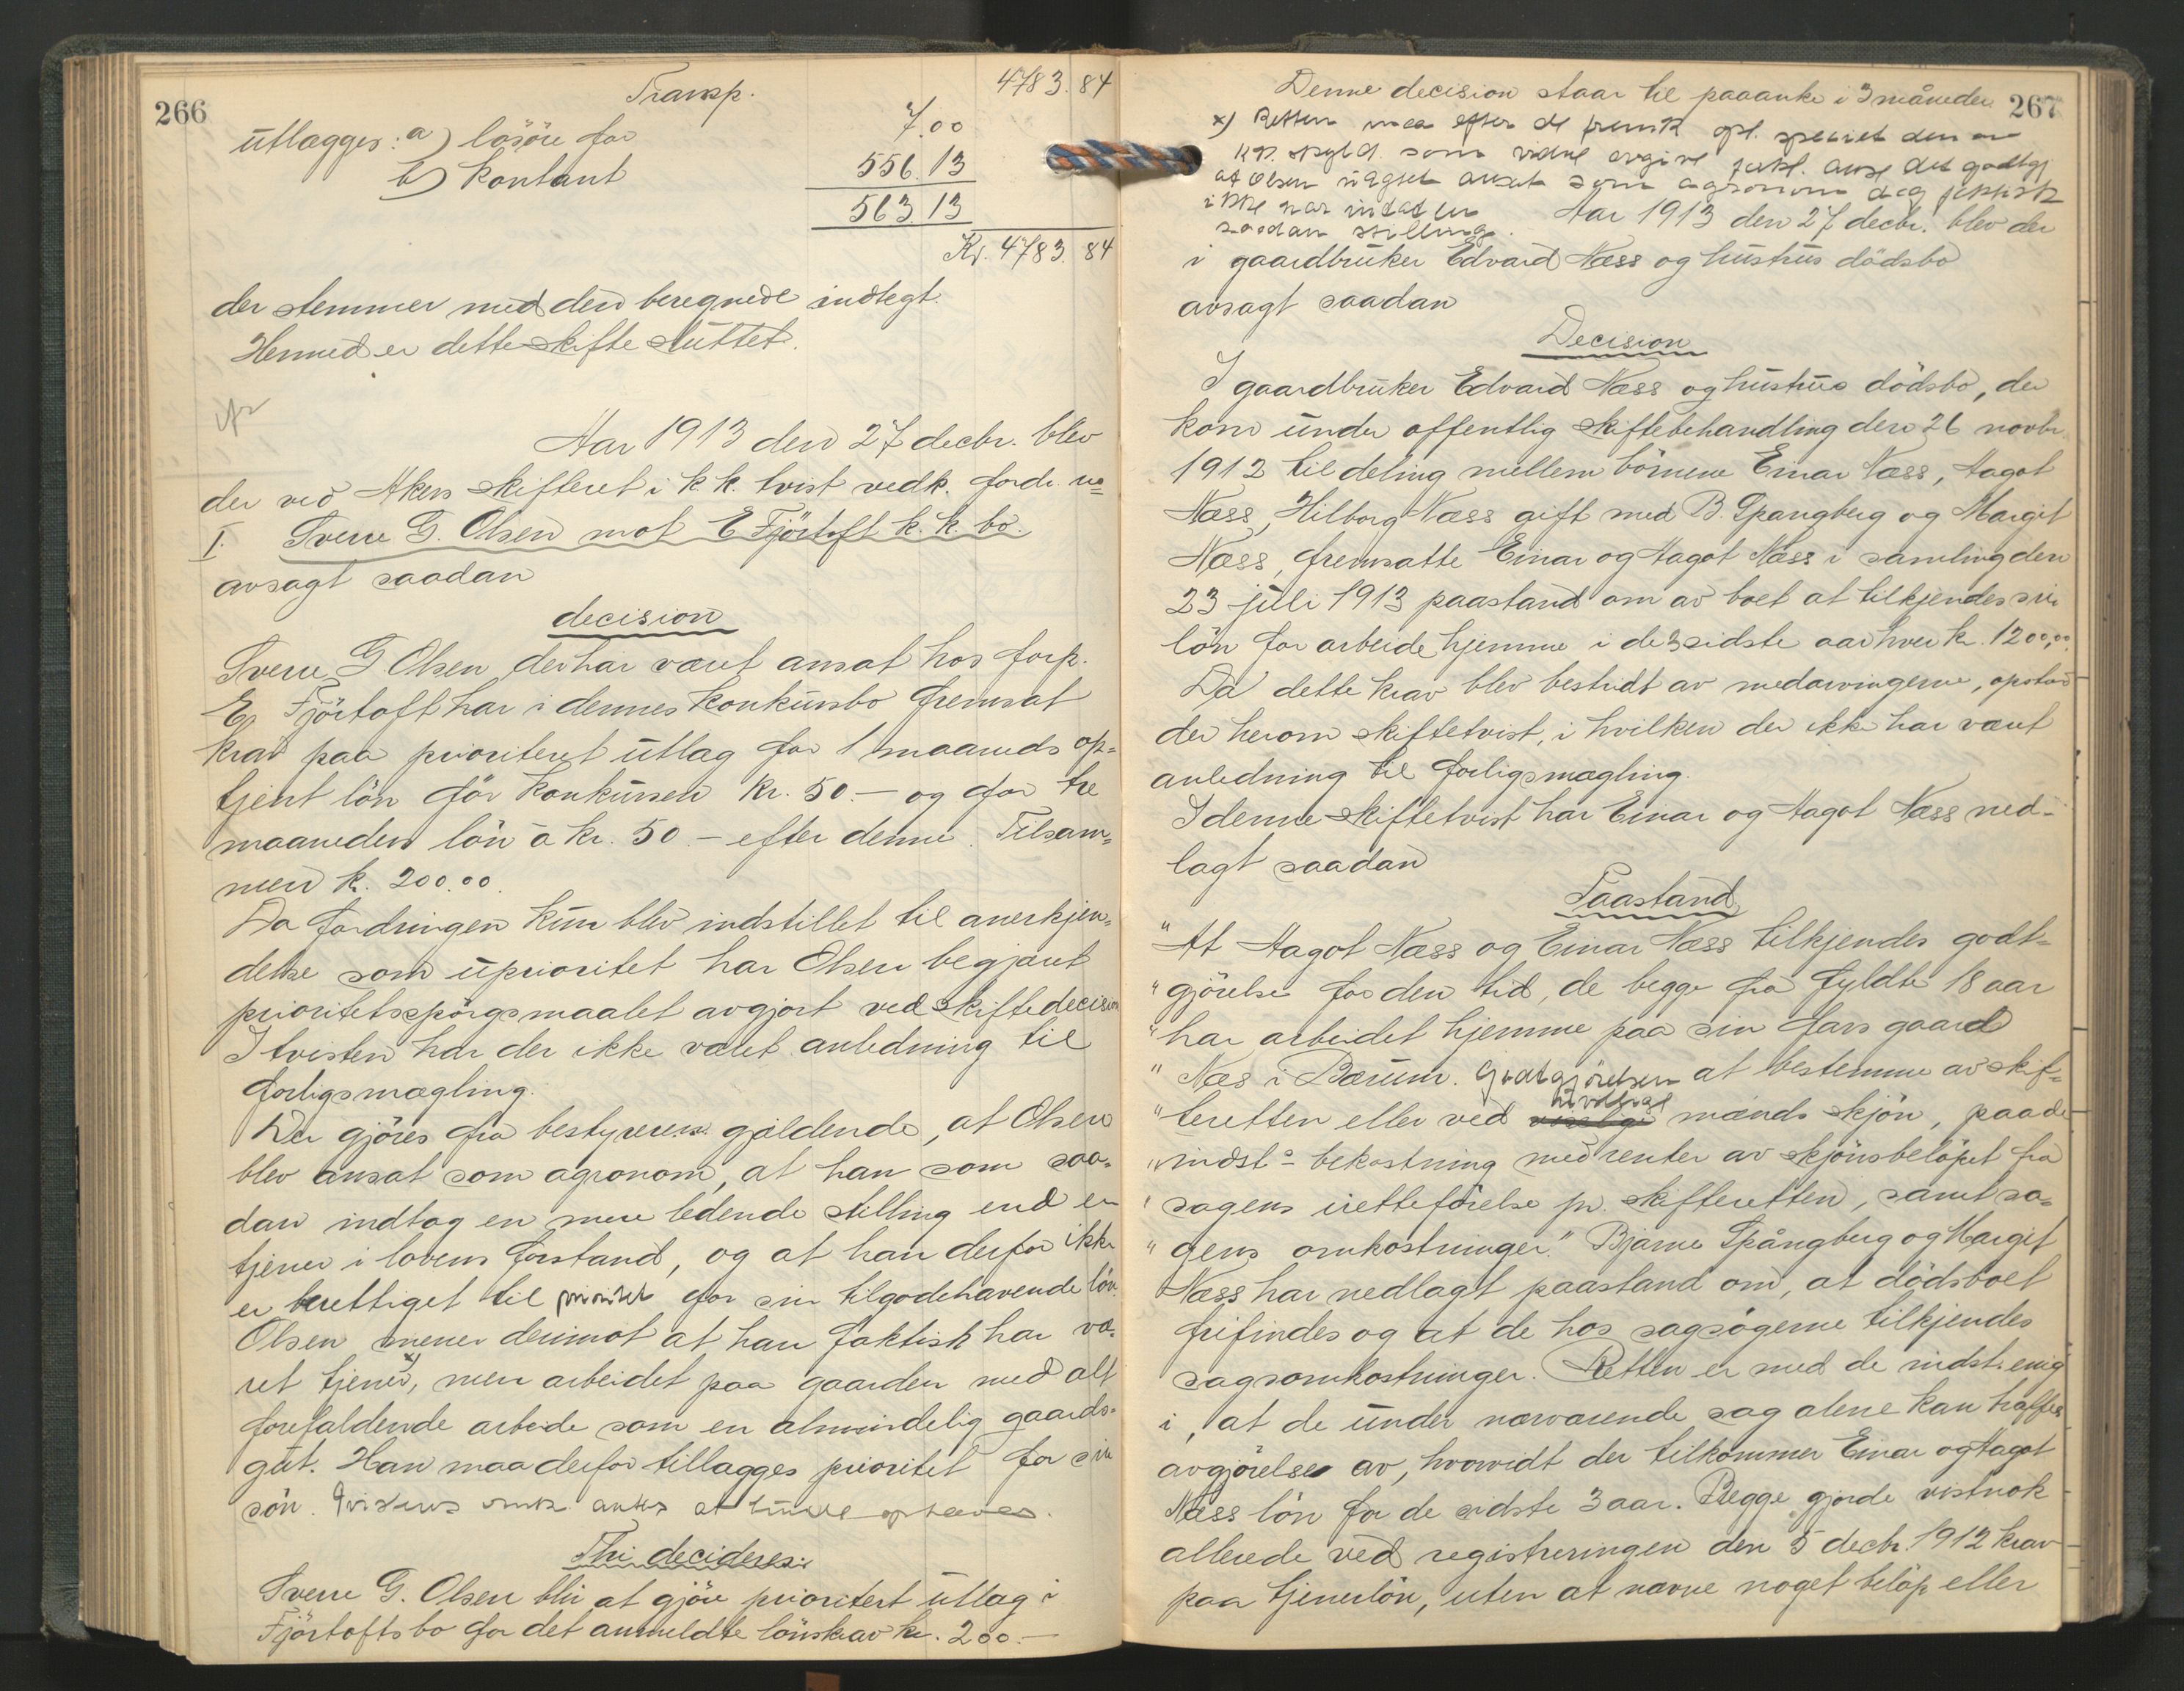 266
Transp. 4783.84
utlægges: a) lösöre for 7.00
b) kontant 556.13
563.13
Kr. 4783.84
der stemmer med den beregnede indtegt.
Hermed er dette skifte sluttet.
Aar 1913 den 27 decbr. blev
der ved Akers skifteret i k.k. tvist vedk. fordr.
I. Sverre G. Olsen mot E Fjörtoft k.k. bo.
avsagt saadan
decision
Sverre G Olsen der har været ansat hos forp.
E. Fjörtoft har i dennes konkursbo fremsat
krav paa prioritert utlag for 1 maaneds op-
tjent lön för konkursen kr. 50.- og for tre
maaneders lön à kr. 50.- efter denne. Tilsam-
men kr. 200.00.
Da fordringen kun blev indstillet til anerkjen-
delse som uprioritet har Olsen begjært
prioritetsspörgsmaalet avgjort ved skiftedecision
I tvisten har der ikke været anledning til
forligsmægling.
Der gjöres fra bestyreren gjældende, at Olsen
blev ansat som agronom, at han som saa-
dan indtog en mere ledende stilling end en
tjener i lovens forstand, og at han derfor ikke
er berettiget til prioritet for sin tilgodehavende lön.
Olsen mener derimot at han faktisk har væ-
ret tjener, x) men arbeidet paa gaarden med alt
forefaldende arbeide som en almindelig gaards-
gut. Han maa derfor tillægges prioritet for sin
lön. Tvistens omk. antas at burde ophæves.
Thi decideres:
Sverre G. Olsen blir at gjöre prioritert utlag i
Fjörtofts bo for det anmeldte lönskrav kr. 200.-
267
Denne decision staar til paaanke i 3 måneder
x) Retten maa efter de fremk opl. specielt den av
kk. skyld. som vidne avgivne forkl. anse det godtgj
at Olsen uagtet ansat som agronom dog faktisk
ikke har indtat en
saadan stilling. Aar 1913 den 27 decbr. blev der
i gaardbruker Edvard Næss og hustrus dödsbo
avsagt saadan
Decision
I gaardbruker Edvard Næss og hustrus dödsbo, der
kom under offentlig skiftebehandling den 26 novbr.
1912 til deling mellem börnene Einar Næss, Aagot
Næss, Hilborg Næss gift med B. Spangberg og Margit
Næss, fremsatte Einar og Aagot Næss i samling den
23 juli 1913 paastand om av boet at tilkjendes
lön for arbeide hjemme i de 3 sidste aar hver kr. 1200,00.
Da dette krav blev bestridt av medarvingerne, opstod
der herom skiftetvist, i hvilken der ikke har været
anledning til forligsmægling.
I denne skiftetvist har Einar og Aagot Næss ned-
lagt saadan
Paastand
"At Aagot Næss og Einar Næss tilkjendes godt-
"gjörelse for den tid, de begge fra fyldte 18 aar
"har arbeidet hjemme paa sin fars gaard
"Næs i Bærum. Godtgjörelsen at bestemme av skif-
"teretten eller ved uvillige mænds skjön, paa de
"indst.s bekostning med renter av skjönsbelöpet fra
"sagens iretteförelse pr. skifteretten, samt sa-
"gens omkostninger." Bjarne Spångberg og Margit
Næss har nedlagt paastand om, at dödsboet
frifindes og at de hos sagsögerne tilkjendes
sagsomkostninger. Retten er med de indst. enig
i, at de under nærværende sag alene kan træffes
avgjörelse av, hvorvidt der tilkommer Einar og Aagot
Næss lön for de sidste 3 aar. Begge gjorde vistnok
allerede ved registreringen den 5 decbr. 1912 krav
paa tjenerlön, uten at nævne noget belöp eller